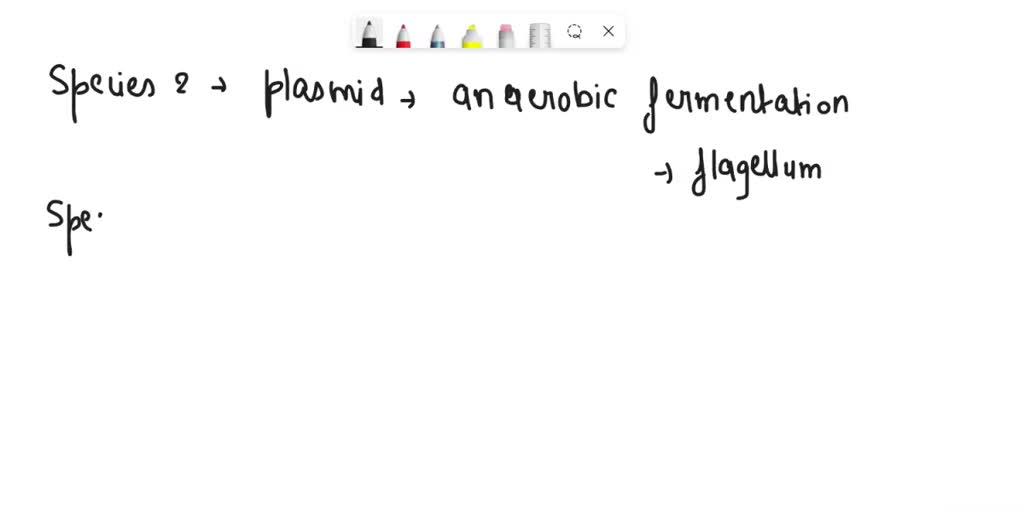 Species 2 → plasmid → anaerobic fermentation
→ flagellum
Spe